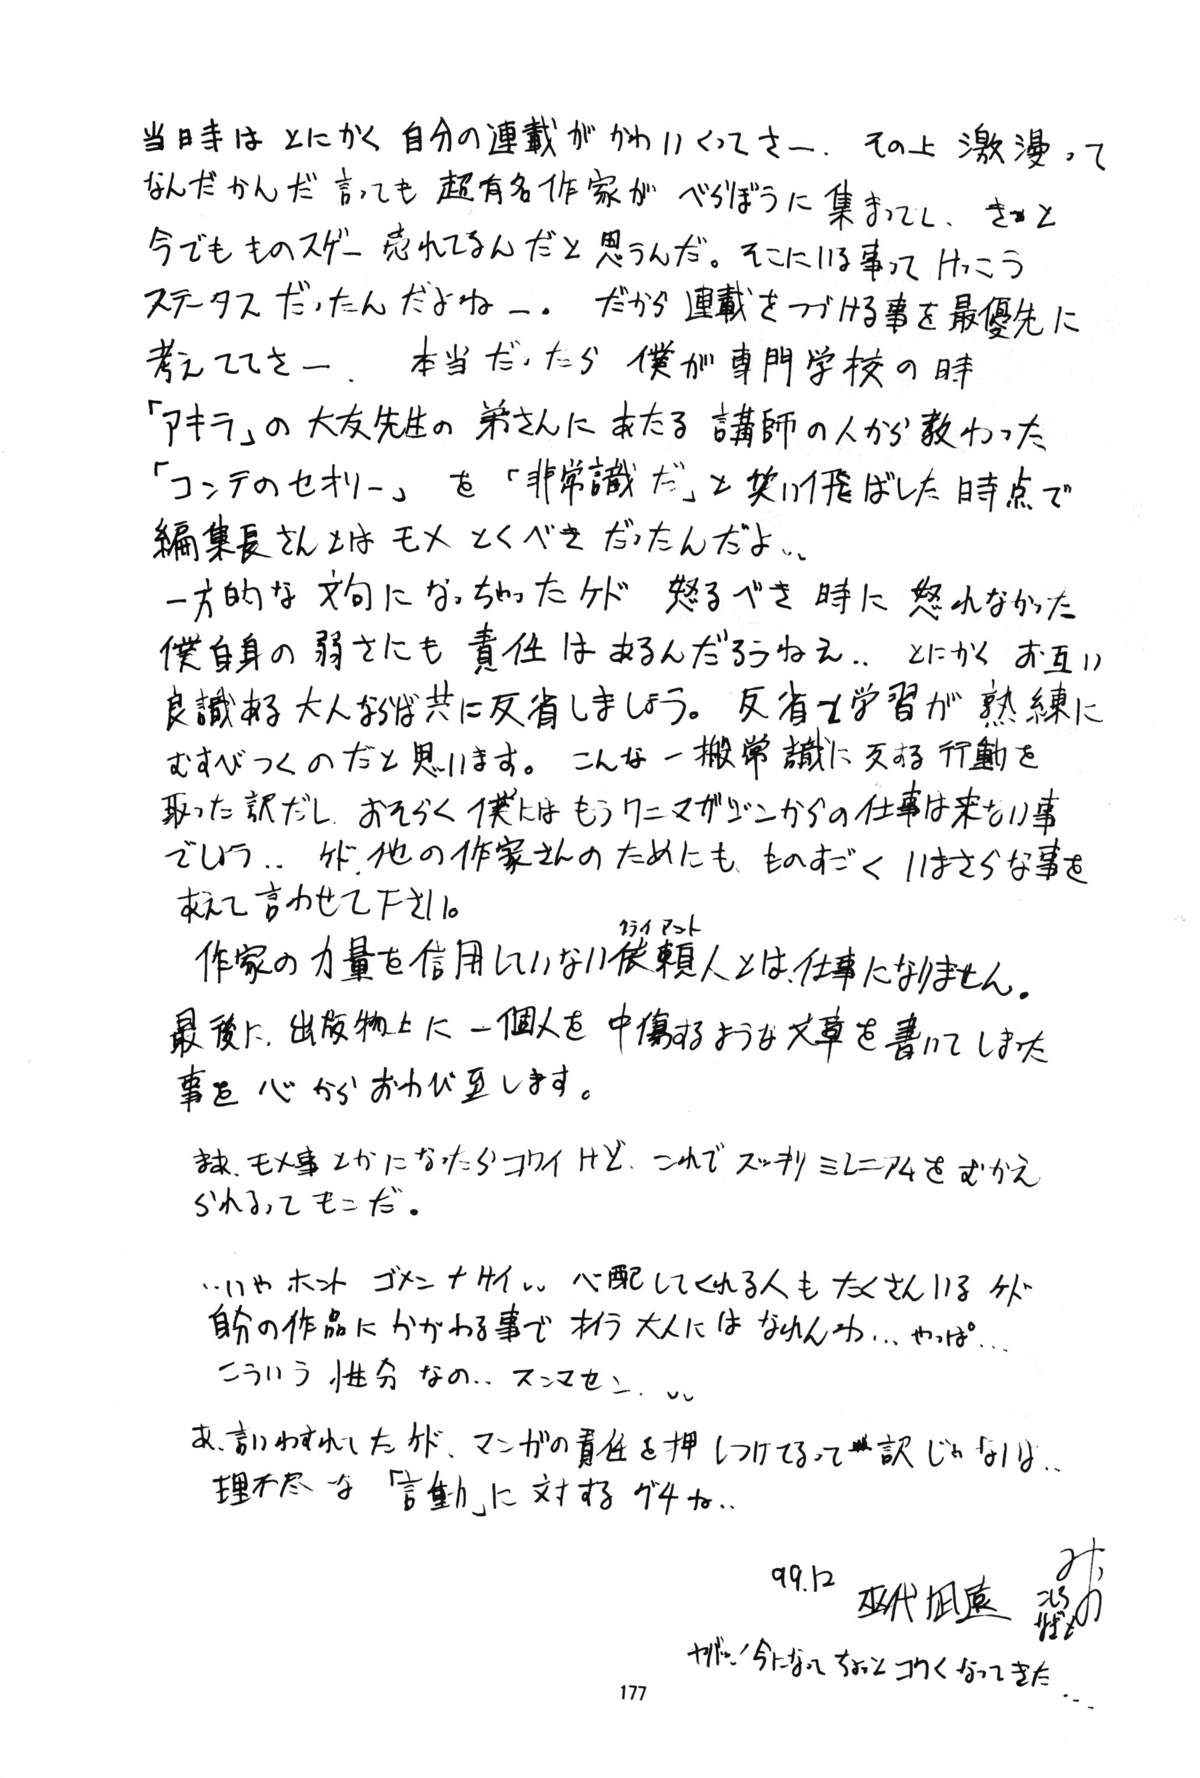 当時は とにかく 自分の連載が かわいくってさー. その上 激漫って
なんだかんだ 言っても 超有名作家が べらぼうに 集まってし、きっと
今でも ものスゲー 売れてるんだと思うんだ。そこにいる事って けっこう
ステータス だったんだよねー。 だから 連載をつづける事を最優先に
考えててさー. 本当だったら 僕が専門学校の時
「アキラ」の 大友先生の 弟さんに あたる 講師の人から教わった
「コンテのセオリー」 を 「非常識だ」と笑い飛ばした時点で
編集長さんとは モメ とくべき だったんだよ..
一方的な 文句に なっちゃったケド 怒るべき 時に 怒れなかった
僕自身の 弱さにも 責任は あるんだろうねえ.. とにかく お互い
良識ある 大人ならば 共に反省しましょう。 反省と学習が 熟練に
むすびつくのだと思います。 こんな 一搬常識に 反する行動を
取った訳だし、おそらく僕にはもうワニマガジンからの仕事は来ない事
でしょう.. ケド、他の作家さんのためにも、ものすごく いまさらな事を
あえて言わせて下さい。
作家の力量を信用していない依頼人(クライアント)とは、仕事になりません。
最後に、出版物上に 一個人を 中傷するような文章を書いてしまった
事を 心から おわび 致します。
まあ、モメ事とかになったらコワイけど、これで スッキリ ミレニアムをむかえ
られるってもンだ。
..いや ホント ゴメンナサイ.. 心配してくれる人も たくさんいる ケド
自分の作品に かかわる事で オイラ 大人には なれんわ... やっぱ...
こういう 性分 なの.. スンマセン...
あ、言いわすれてたケド、マンガの責任を押しつけてるって訳じゃないよ..
理不尽な 「言動」に 対する グチね..
99.12
巫代凪遠
みっの
こしろ
なぎと
ヤバッ! 今になって ちょっと コワくなってきた...
177